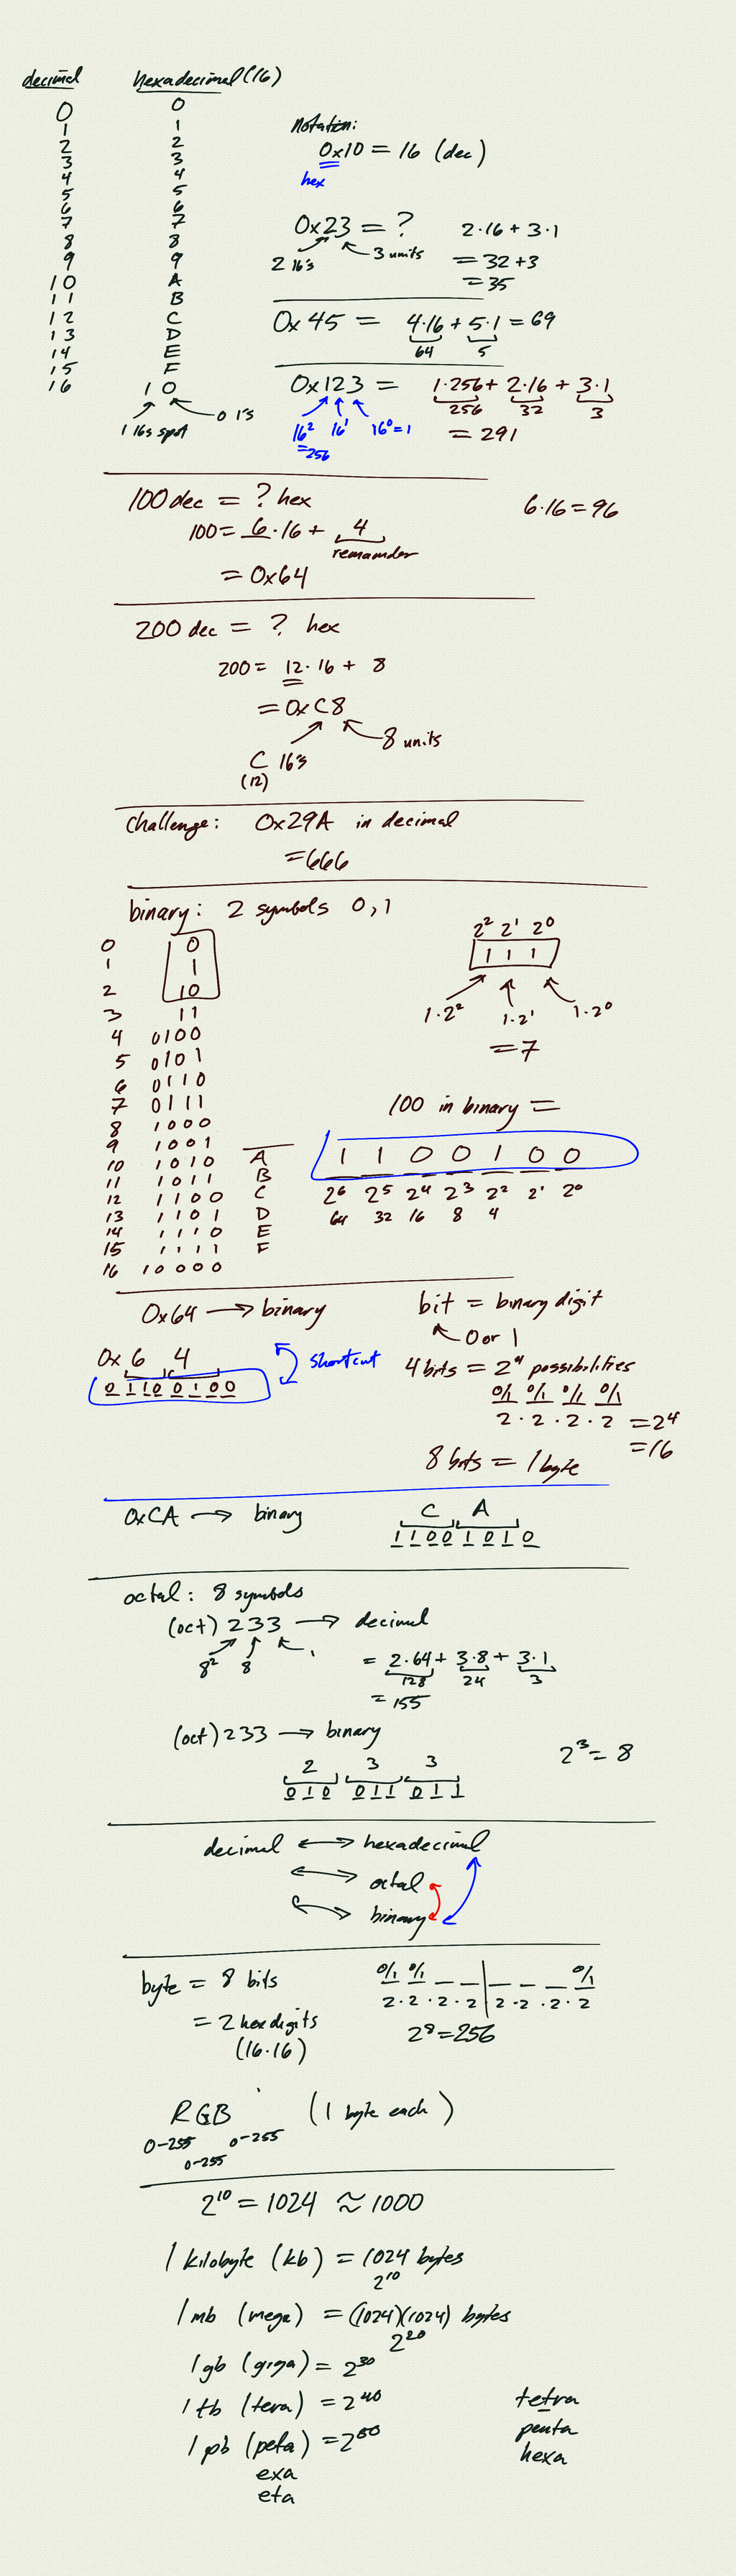 decimal hexadecimal (16)
0 0
1 1
2 2
3 3
4 4
5 5
6 6
7 7
8 8
9 9
10 A
11 B
12 C
13 D
14 E
15 F
16 10
1 16s spot 0 1's
Notation:
0x10 = 16 (dec)
hex
0x23 = ? 2·16 + 3·1
2 16's 3 units = 32+3
= 35
0x45 = 4·16 + 5·1 = 69
64 5
0x123 = 1·256 + 2·16 + 3·1
256 32 3
16² 16¹ 16⁰=1 = 291
=256
100 dec = ? hex 6·16 = 96
100 = 6·16 + 4
remainder
= 0x64
200 dec = ? hex
200 = 12·16 + 8
= 0xC8
8 units
C 16's
(12)
challenge: 0x29A in decimal
=666
binary: 2 symbols 0,1
0 0
1 1
2 10
3 11
4 0100
5 0101
6 0110
7 0111
8 1000
9 1001
10 1010 A
11 1011 B
12 1100 C
13 1101 D
14 1110 E
15 1111 F
16 10000
2² 2¹ 2⁰
1 1 1
1·2² 1·2¹ 1·2⁰
= 7
100 in binary =
1 1 0 0 1 0 0
2⁶ 2⁵ 2⁴ 2³ 2² 2¹ 2⁰
64 32 16 8 4
0x64 → binary
0x 6 4 shortcut
0 1 1 0 0 1 0 0
bit = binary digit
0 or 1
4 bits = 2⁴ possibilities
0/1 0/1 0/1 0/1
2 · 2 · 2 · 2 = 2⁴
= 16
8 bits = 1 byte
0xCA → binary C A
1 1 0 0 1 0 1 0
octal: 8 symbols
(oct) 233 → decimal
8² 8 1 = 2·64 + 3·8 + 3·1
128 24 3
= 155
(oct) 233 → binary 2³ = 8
2 3 3
0 1 0 0 1 1 0 1 1
decimal ↔ hexadecimal
↔ octal
↔ binary
byte = 8 bits 0/1 0/1 0/1
2·2·2·2 2·2·2·2
= 2 hex digits 2⁸=256
(16·16)
RGB (1 byte each)
0-255 0-255
0-255
2¹⁰ = 1024 ≈ 1000
1 kilobyte (kb) = 1024 bytes
2¹⁰
1 mb (mega) = (1024)(1024) bytes
2²⁰
1 gb (giga) = 2³⁰
1 tb (tera) = 2⁴⁰ tetra
1 pb (peta) = 2⁵⁰ penta
exa hexa
eta